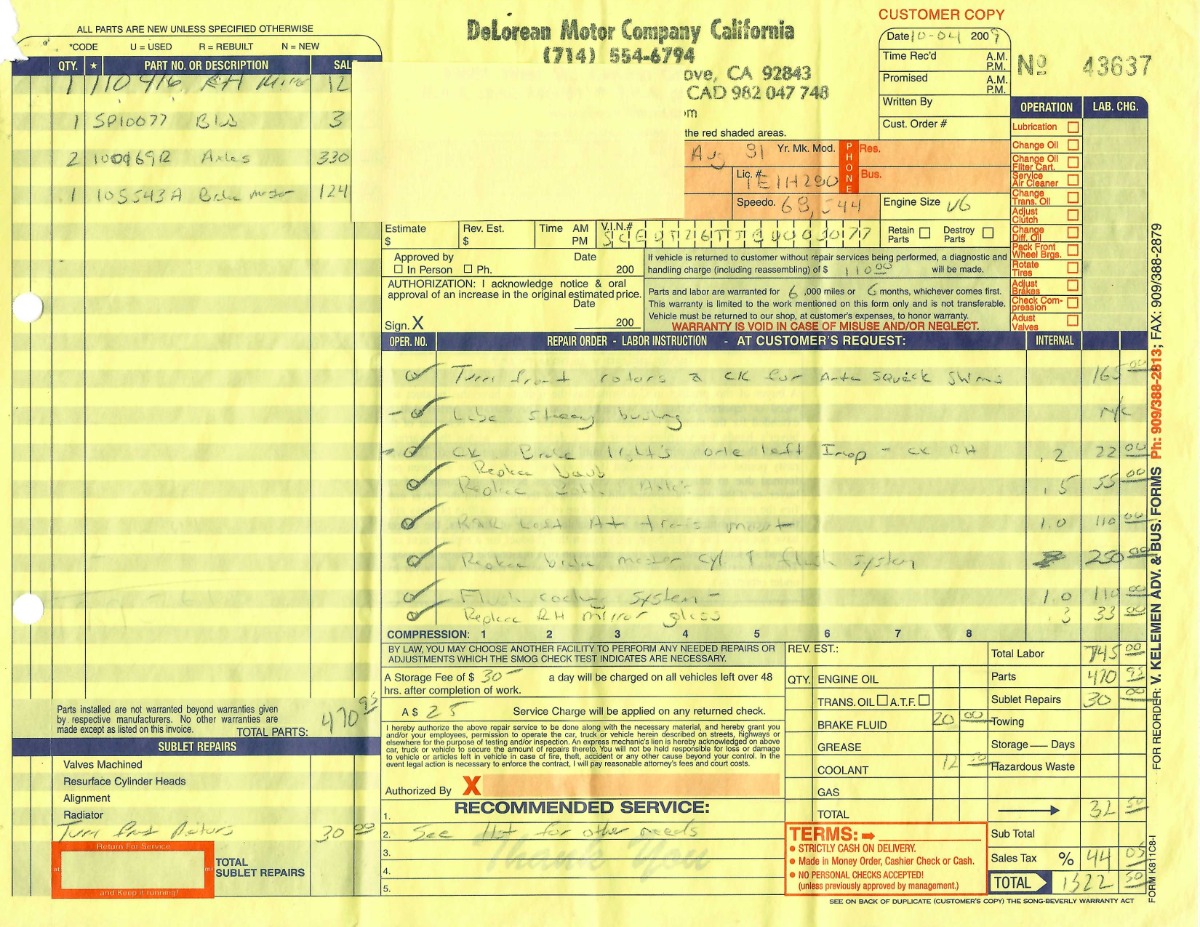 ALL PARTS ARE NEW UNLESS SPECIFIED OTHERWISE
*CODE U = USED R = REBUILT N = NEW
QTY. ★ PART NO. OR DESCRIPTION SAL
1 110416 RH Mirror 12
1 SP10077 Blb 3
2 100469R Axles 330
1 105543A Brake master 124
Parts installed are not warranted beyond warranties given
by respective manufacturers. No other warranties are
made except as listed on this invoice. TOTAL PARTS: 470 95
SUBLET REPAIRS
Valves Machined
Resurface Cylinder Heads
Alignment
Radiator
Turn front Rotors 30 00
Return For Service
and Keep it running!
TOTAL
SUBLET REPAIRS
DeLorean Motor Company California
(714) 554-6794
ove, CA 92843
CAD 982 047 748
om
the red shaded areas.
CUSTOMER COPY
Date 10-04 2009
Time Rec'd A.M. P.M.
Promised A.M. P.M.
Written By
Cust. Order #
No 43637
Aug 81 Yr. Mk. Mod. PHONE Res.
Lic. # 1E1H280 Bus.
Speedo. 68,544 Engine Size V6
Estimate $ Rev. Est. $ Time AM PM V.I.N.#
Retain Parts Destroy Parts
Approved by Date
In Person Ph. 200
AUTHORIZATION: I acknowledge notice & oral
approval of an increase in the original estimated price.
Date
Sign. X 200
If vehicle is returned to customer without repair services being performed, a diagnostic and
handling charge (including reassembling) of $ 110 00 will be made.
Parts and labor are warranted for 6 ,000 miles or 6 months, whichever comes first.
This warranty is limited to the work mentioned on this form only and is not transferable.
Vehicle must be returned to our shop, at customer's expenses, to honor warranty.
WARRANTY IS VOID IN CASE OF MISUSE AND/OR NEGLECT.
OPERATION LAB. CHG.
Lubrication
Change Oil
Change Oil Filter Cart.
Service Air Cleaner
Change Trans. Oil
Adjust Clutch
Change Diff. Oil
Pack Front Wheel Brgs.
Rotate Tires
Adjust Brakes
Check Compression
Adust Valves
OPER. NO. REPAIR ORDER - LABOR INSTRUCTION - AT CUSTOMER'S REQUEST: INTERNAL
Turn front rotors & CK for Ante Squeek Shims 165 00
Lube steering bushing N/C
CK Brake light's one left Inop - CK RH .2 22 00
Replace baub
Replace Axles .5 55 00
At trans mount 1.0 110 00
Replace brake master cyl & flush system 250 00
Flush cooling system - 1.0 110 00
Replace RH mirror glass .3 33 00
COMPRESSION: 1 2 3 4 5 6 7 8
BY LAW, YOU MAY CHOOSE ANOTHER FACILITY TO PERFORM ANY NEEDED REPAIRS OR
ADJUSTMENTS WHICH THE SMOG CHECK TEST INDICATES ARE NECESSARY.
A Storage Fee of $ 30 — a day will be charged on all vehicles left over 48
hrs. after completion of work.
A $ 25 Service Charge will be applied on any returned check.
I hereby authorize the above repair service to be done along with the necessary material, and hereby grant you
and/or your employees, permission to operate the car, truck or vehicle herein described on streets, highways or
elsewhere for the purpose of testing and/or inspection. An express mechanic's lien is hereby acknowledged on above
car, truck or vehicle to secure the amount of repairs thereto. You will not be held responsible for loss or damage
to vehicle or articles left in vehicle in case of fire, theft, accident or any other cause beyond your control. In the
event legal action is necessary to enforce the contract, I will pay reasonable attorney's fees and court costs.
Authorized By X
RECOMMENDED SERVICE:
1.
2. See list for other needs
3.
4.
5.
Thank You
REV. EST.:
QTY. ENGINE OIL
TRANS. OIL A.T.F.
BRAKE FLUID 20 00
GREASE
COOLANT 12 50
GAS
TOTAL
Total Labor 745 00
Parts 470 95
Sublet Repairs 30 00
Towing
Storage — Days
Hazardous Waste
32 50
Sub Total
Sales Tax % 44 05
TOTAL 1322 50
TERMS:
• STRICTLY CASH ON DELIVERY.
• Made in Money Order, Cashier Check or Cash.
• NO PERSONAL CHECKS ACCEPTED!
(unless previously approved by management.)
SEE ON BACK OF DUPLICATE (CUSTOMER'S COPY) THE SONG-BEVERLY WARRANTY ACT
FORM K811C8-I
FOR REORDER: V. KELEMEN ADV. & BUS. FORMS Ph: 909/388-2813; FAX: 909/388-2879